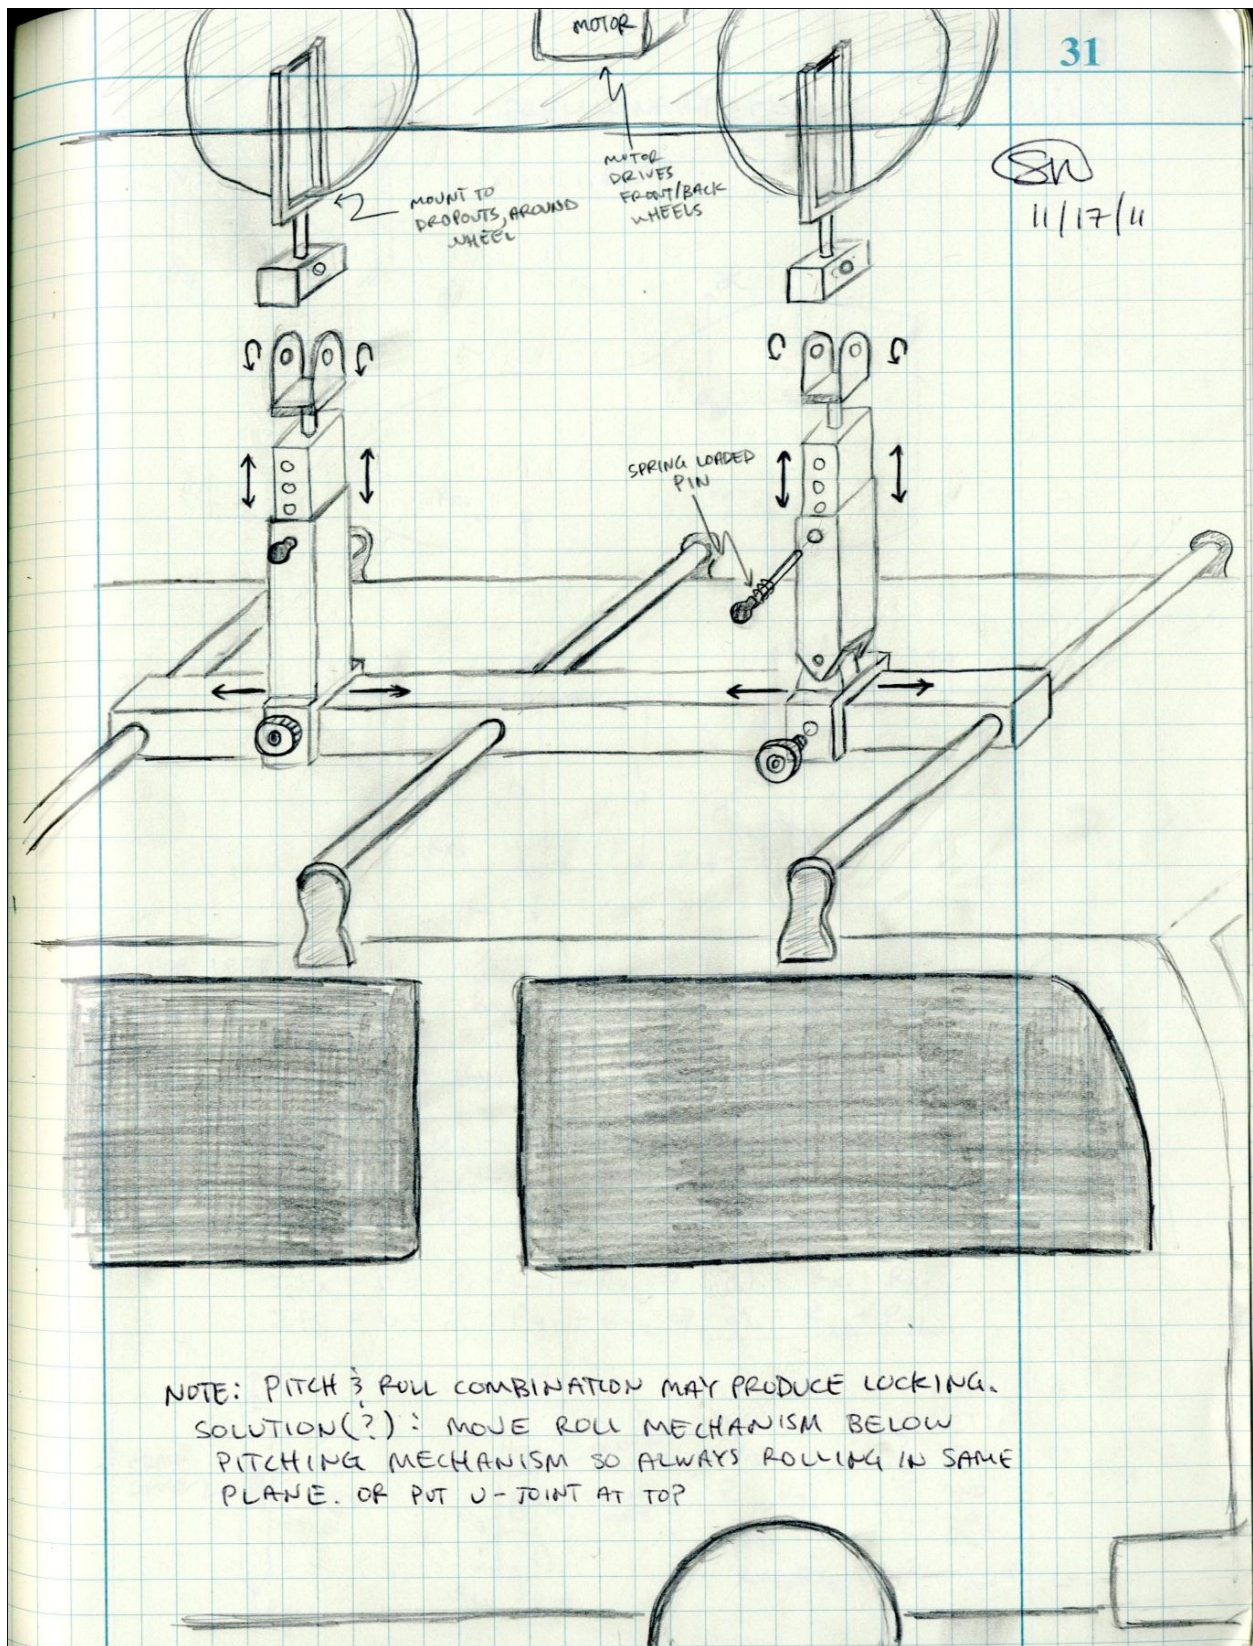 MOTOR
31
SW
11/17/11
MOTOR
DRIVES
FRONT/BACK
WHEELS
MOUNT TO
DROPOUTS, AROUND
WHEEL
SPRING LOADED
PIN
NOTE: PITCH & ROLL COMBINATION MAY PRODUCE LOCKING.
SOLUTION(?): MOVE ROLL MECHANISM BELOW
PITCHING MECHANISM SO ALWAYS ROLLING IN SAME
PLANE. OR PUT U-JOINT AT TOP